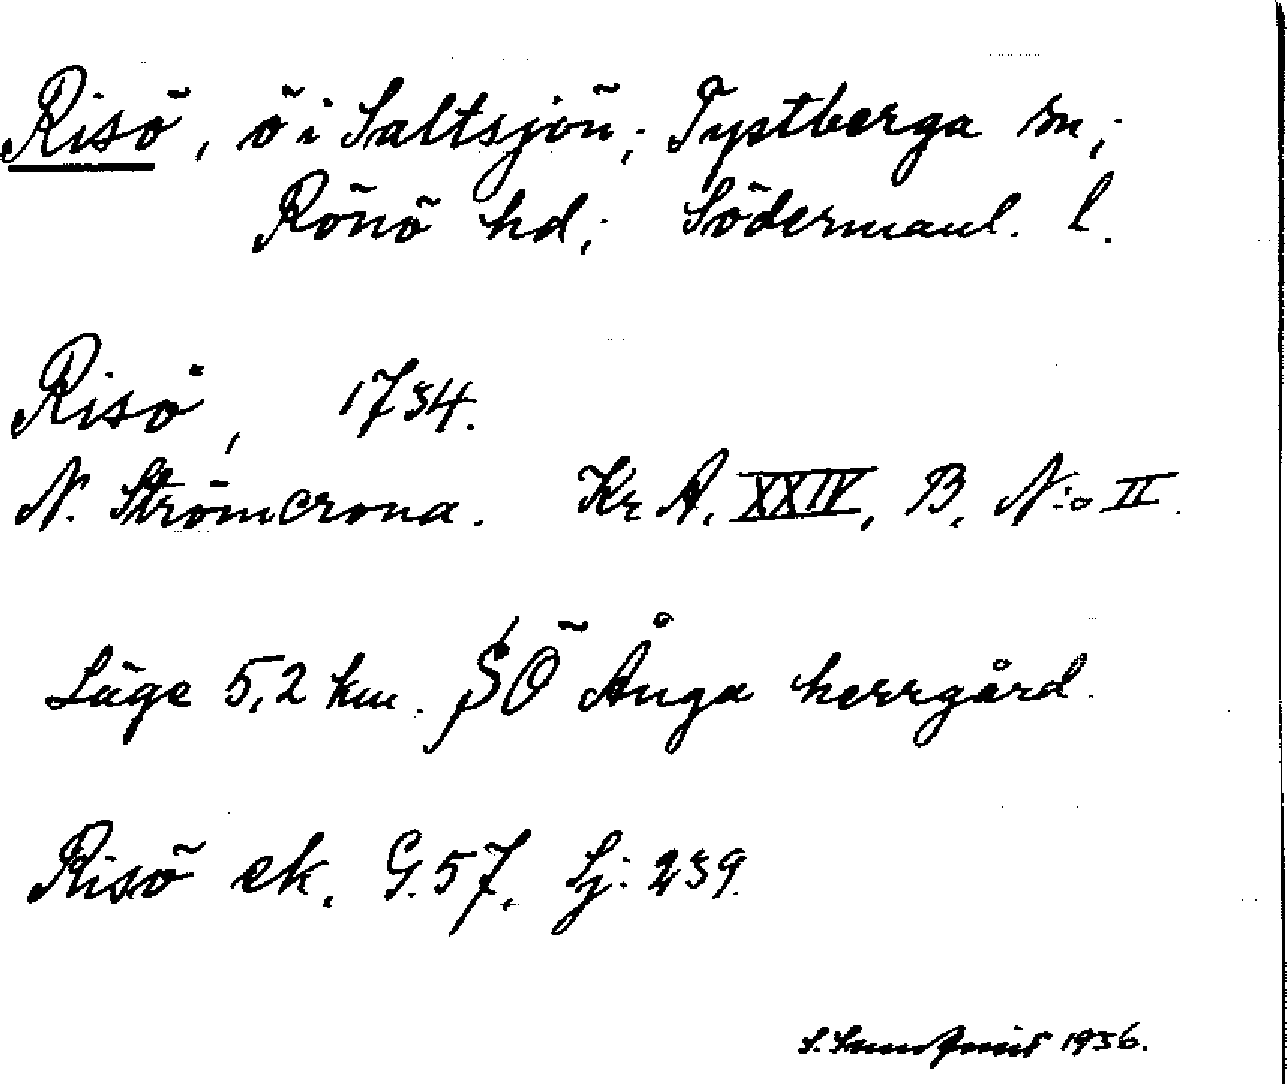 Risö, ö i Saltsjön; Tystberga sn;
Rönö hd; Södermanl. l.
Risö, 1734.
N. Strömcrona. Kr A. XXIV, B, N:o II.
Läge 5,2 km. SÖ Ånga herrgård.
Risö ek. G. 57, Lj: 239.
S. Sundqvist 1936.